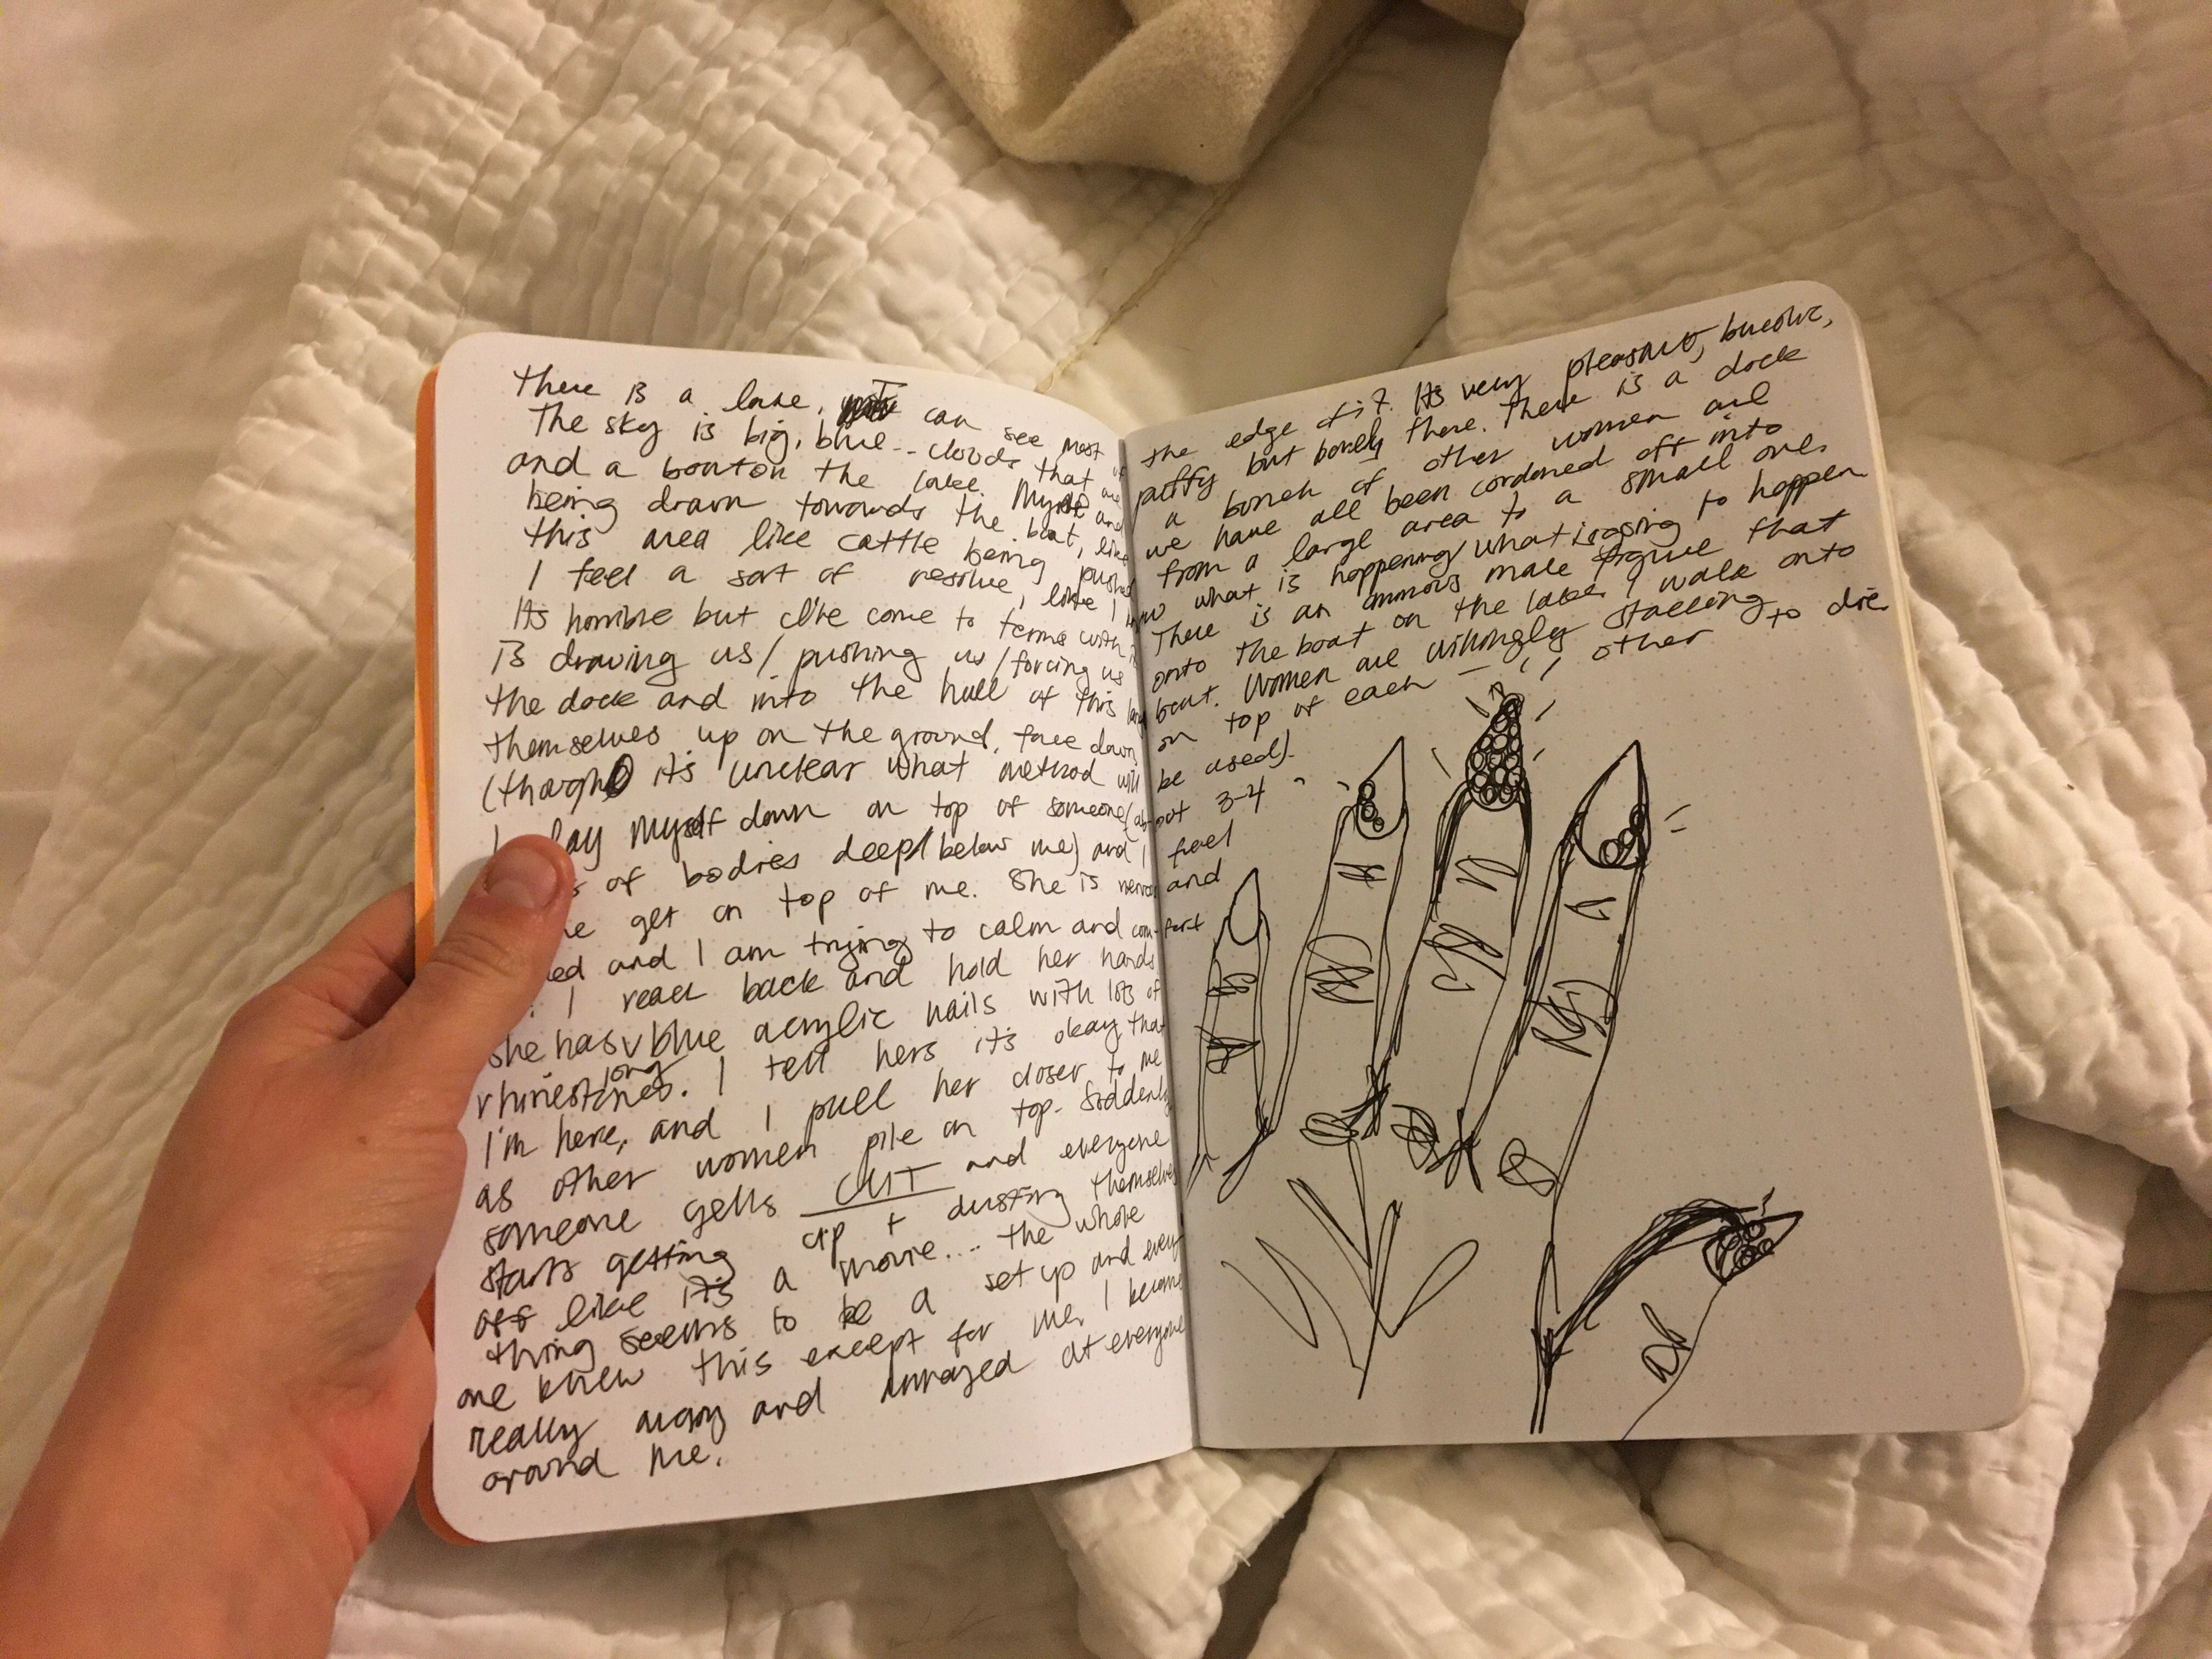 There is a lake, I can see most of the edge of it. Its very pleasant, bucolic,
The sky is big, blue... clouds that are puffy but barely there. There is a dock
and a boat on the lake. Myself and a bunch of other women are
being drawn towards the boat, like we have all been cordoned off into
this area like cattle being pushed from a large area to a small one.
I feel a sort of resolve, like I know what is happening/what is going to happen
Its horrible but I've come to terms with it. There is an ominous male figure that
is drawing us/pushing us/forcing us onto the boat on the lake. I walk onto
the dock and into the hull of this boat. Women are willingly stacking
themselves up on the ground, face down, on top of each other to die
(though its unclear what method will be used).
I lay myself down on top of someone (ab-out 3-4
s of bodies deep/below me) and I feel
ne get on top of me. She is nervous and
ed and I am trying to calm and com-fort
. I reach back and hold her hands
she has long blue acrylic nails with lots of
rhinestones. I tell hers it's okay, that
I'm here, and I pull her closer to me
as other women pile on top. Suddenly
someone yells CUT and everyone
starts getting up + dusting themselves
off like its a movie... the whole
thing seems to be a set up and every
one knew this except for me, I become
really angry and annoyed at everyone
around me.